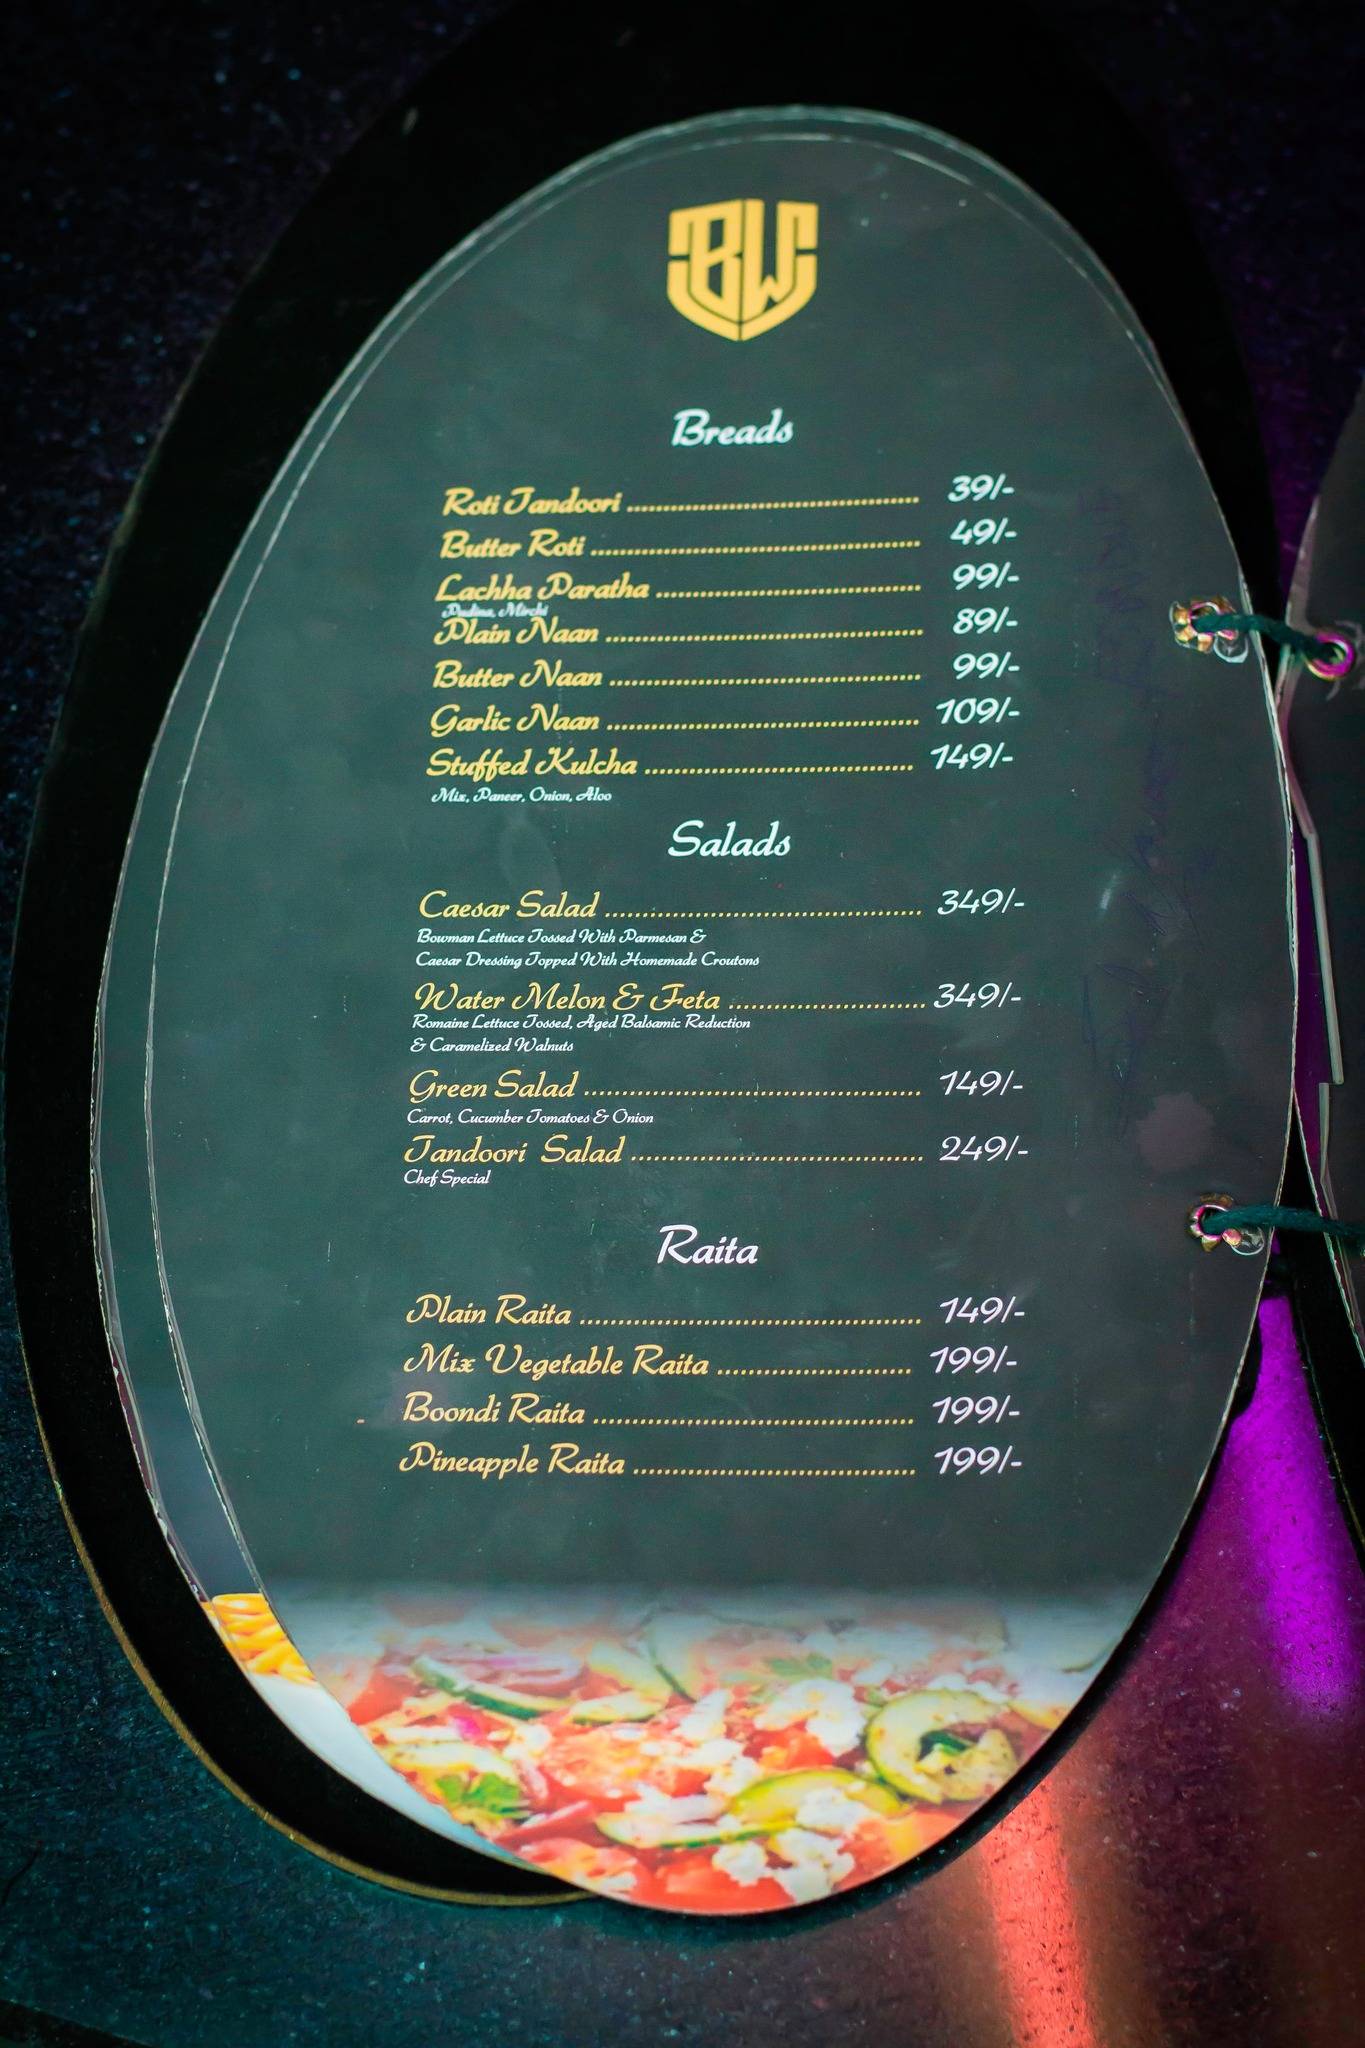 BW
Breads
Roti Tandoori ........................................ 39/-
Butter Roti ............................................. 49/-
Lachha Paratha .................................... 99/-
Pudina, Mirchi
Plain Naan ........................................... 89/-
Butter Naan .......................................... 99/-
Garlic Naan .......................................... 109/-
Stuffed Kulcha ..................................... 149/-
Mix, Paneer, Onion, Aloo
Salads
Caesar Salad .......................................... 349/-
Bowman Lettuce Tossed With Parmesan &
Caesar Dressing Topped With Homemade Croutons
Water Melon & Feta .......................... 349/-
Romaine Lettuce Tossed, Aged Balsamic Reduction
& Caramelized Walnuts
Green Salad ............................................. 149/-
Carrot, Cucumber Tomatoes & Onion
Tandoori Salad ....................................... 249/-
Chef Special
Raita
Plain Raita ............................................. 149/-
Mix Vegetable Raita .......................... 199/-
Boondi Raita .......................................... 199/-
Pineapple Raita ..................................... 199/-